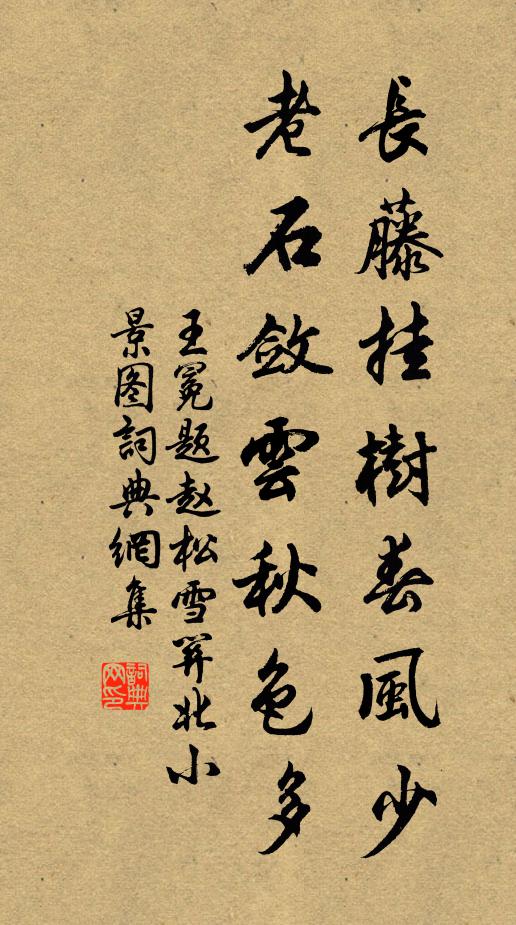 長藤挂樹春風少
老石斂雲秋色多
王冕题赵松雪罙北小
景图詞典網集
詞典
网印